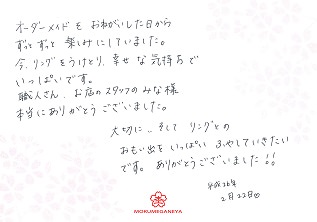 オーダーメイド を おねがいした日から
ずっと ずっと 楽しみにしていました。
今、リングをうけとり、幸せ な 気持ちで
いっぱいです。
職人さん、お店のスタッフの みな様
本当にありがとうございました。
大切に、、そして リングとの
おもい出を いっぱい ふやしていきたい
です。 ありがとうございました!!
平成26年
2月22日♡
MOKUMEGANEYA